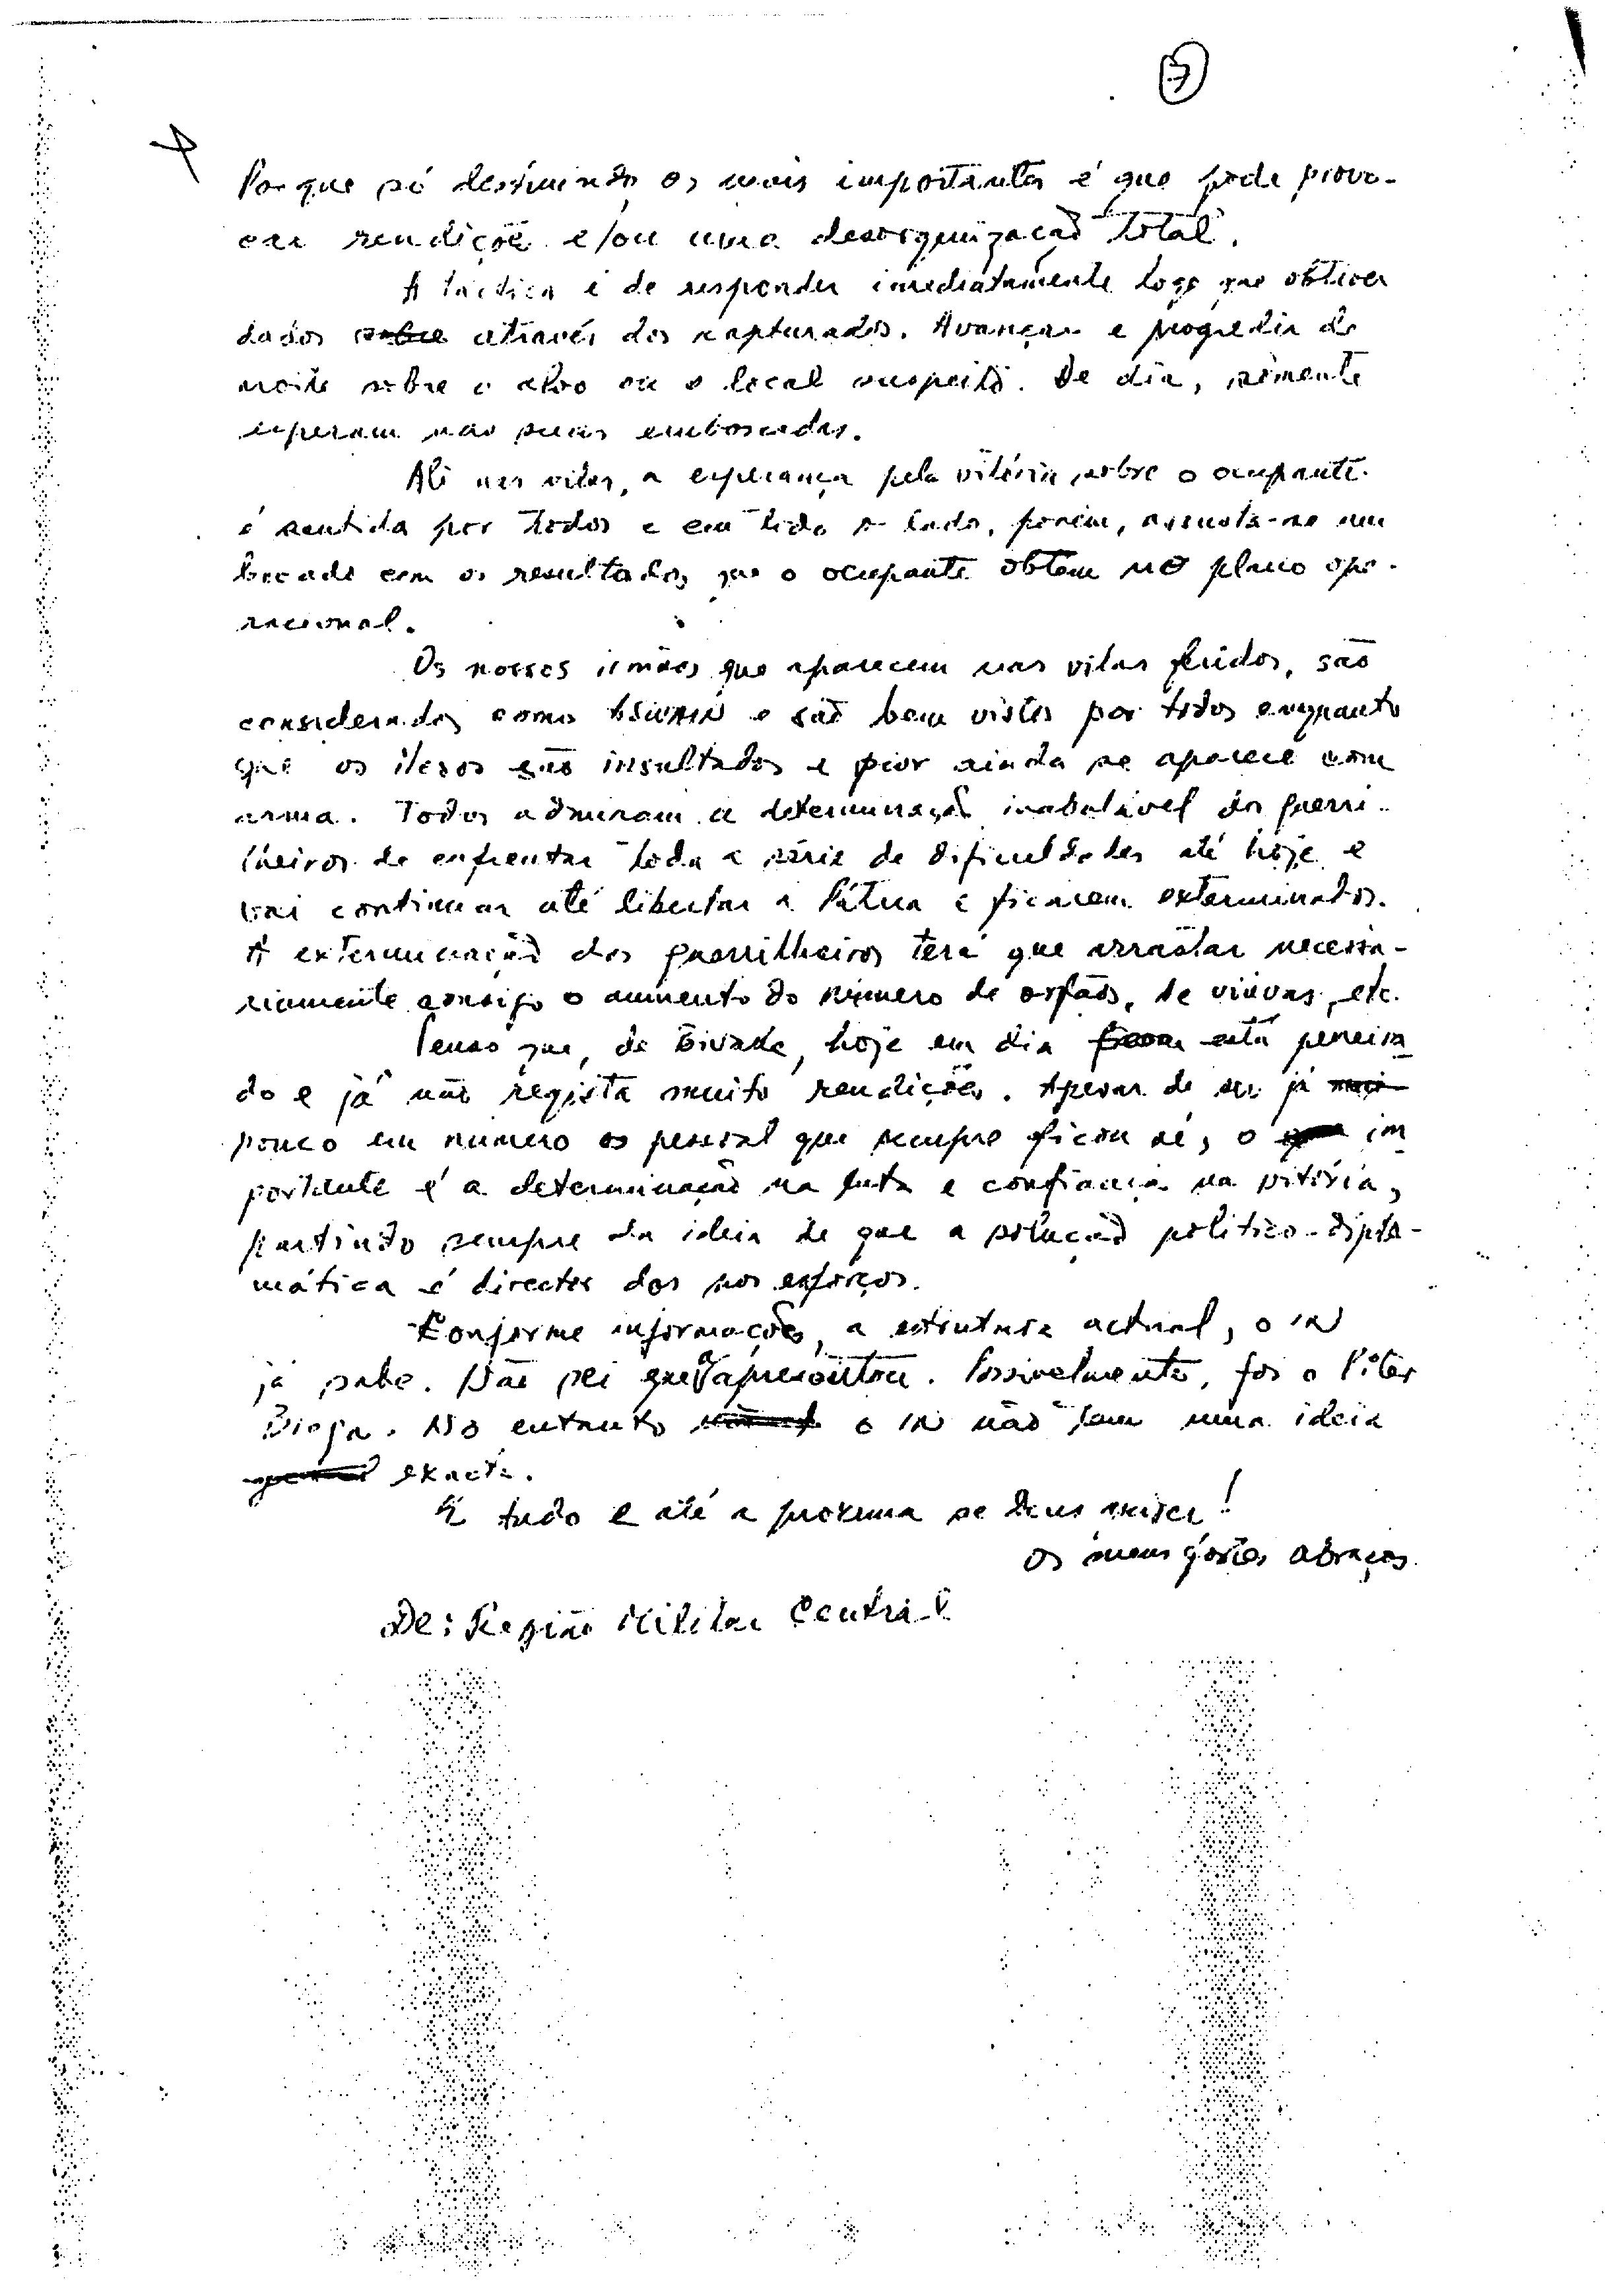 7
Porque só destruindo os mais importantes é que pode provo-
car rendiçõe e/ou uma desorganização total.
A táctica é de responder imediatamente logo que obtiver
dados sobre através dos capturados. Avançar e progredir de
noite sobre o alvo ou o local suspeito. De dia, sòmente
esperam nas suas emboscadas.
Ali nas vilas, a esperança pela vitória sobre o ocupante
é sentida por todos e em todo o lado, porém, assusta-se um
bocado com os resultados que o ocupante obtem no plano ope-
racional.
Os nossos irmãos que aparecem nas vilas feridos, são
considerados como ASUWAIN e são bem vistos por todos enquanto
que os ilesos são insultados e pior ainda se aparece com
arma. Todos admiram a determinação inabalável dos guerri-
lheiros de enfrentar toda a série de dificuldades até hoje e
vai continuar até libertar a Pátria e ficarem exterminados.
A exterminação dos guerrilheiros terá que arrastar necessa-
riamente consigo o aumento do número de orfãos, de viúvas, etc.
Penso que, de hoje em dia está peneira
do e já não regista muito rendições. Apesar de ser já
pouco em numero os pessoal que sempre ficou de, o im
portante é a determinação na luta e confiança na vitória,
partindo sempre da ideia de que a solução politico-diplo-
mática é directos dos nos esforços.
Conforme informações, a estrutura actual, o IN
já sabe. Não sei que apresentou. Possivelmente, foi o Piter
No entanto o IN não tem uma ideia
exacta.
É tudo e até a proxima se Deus quiser!
Os meus fortes abraços
De: Região Militar Central